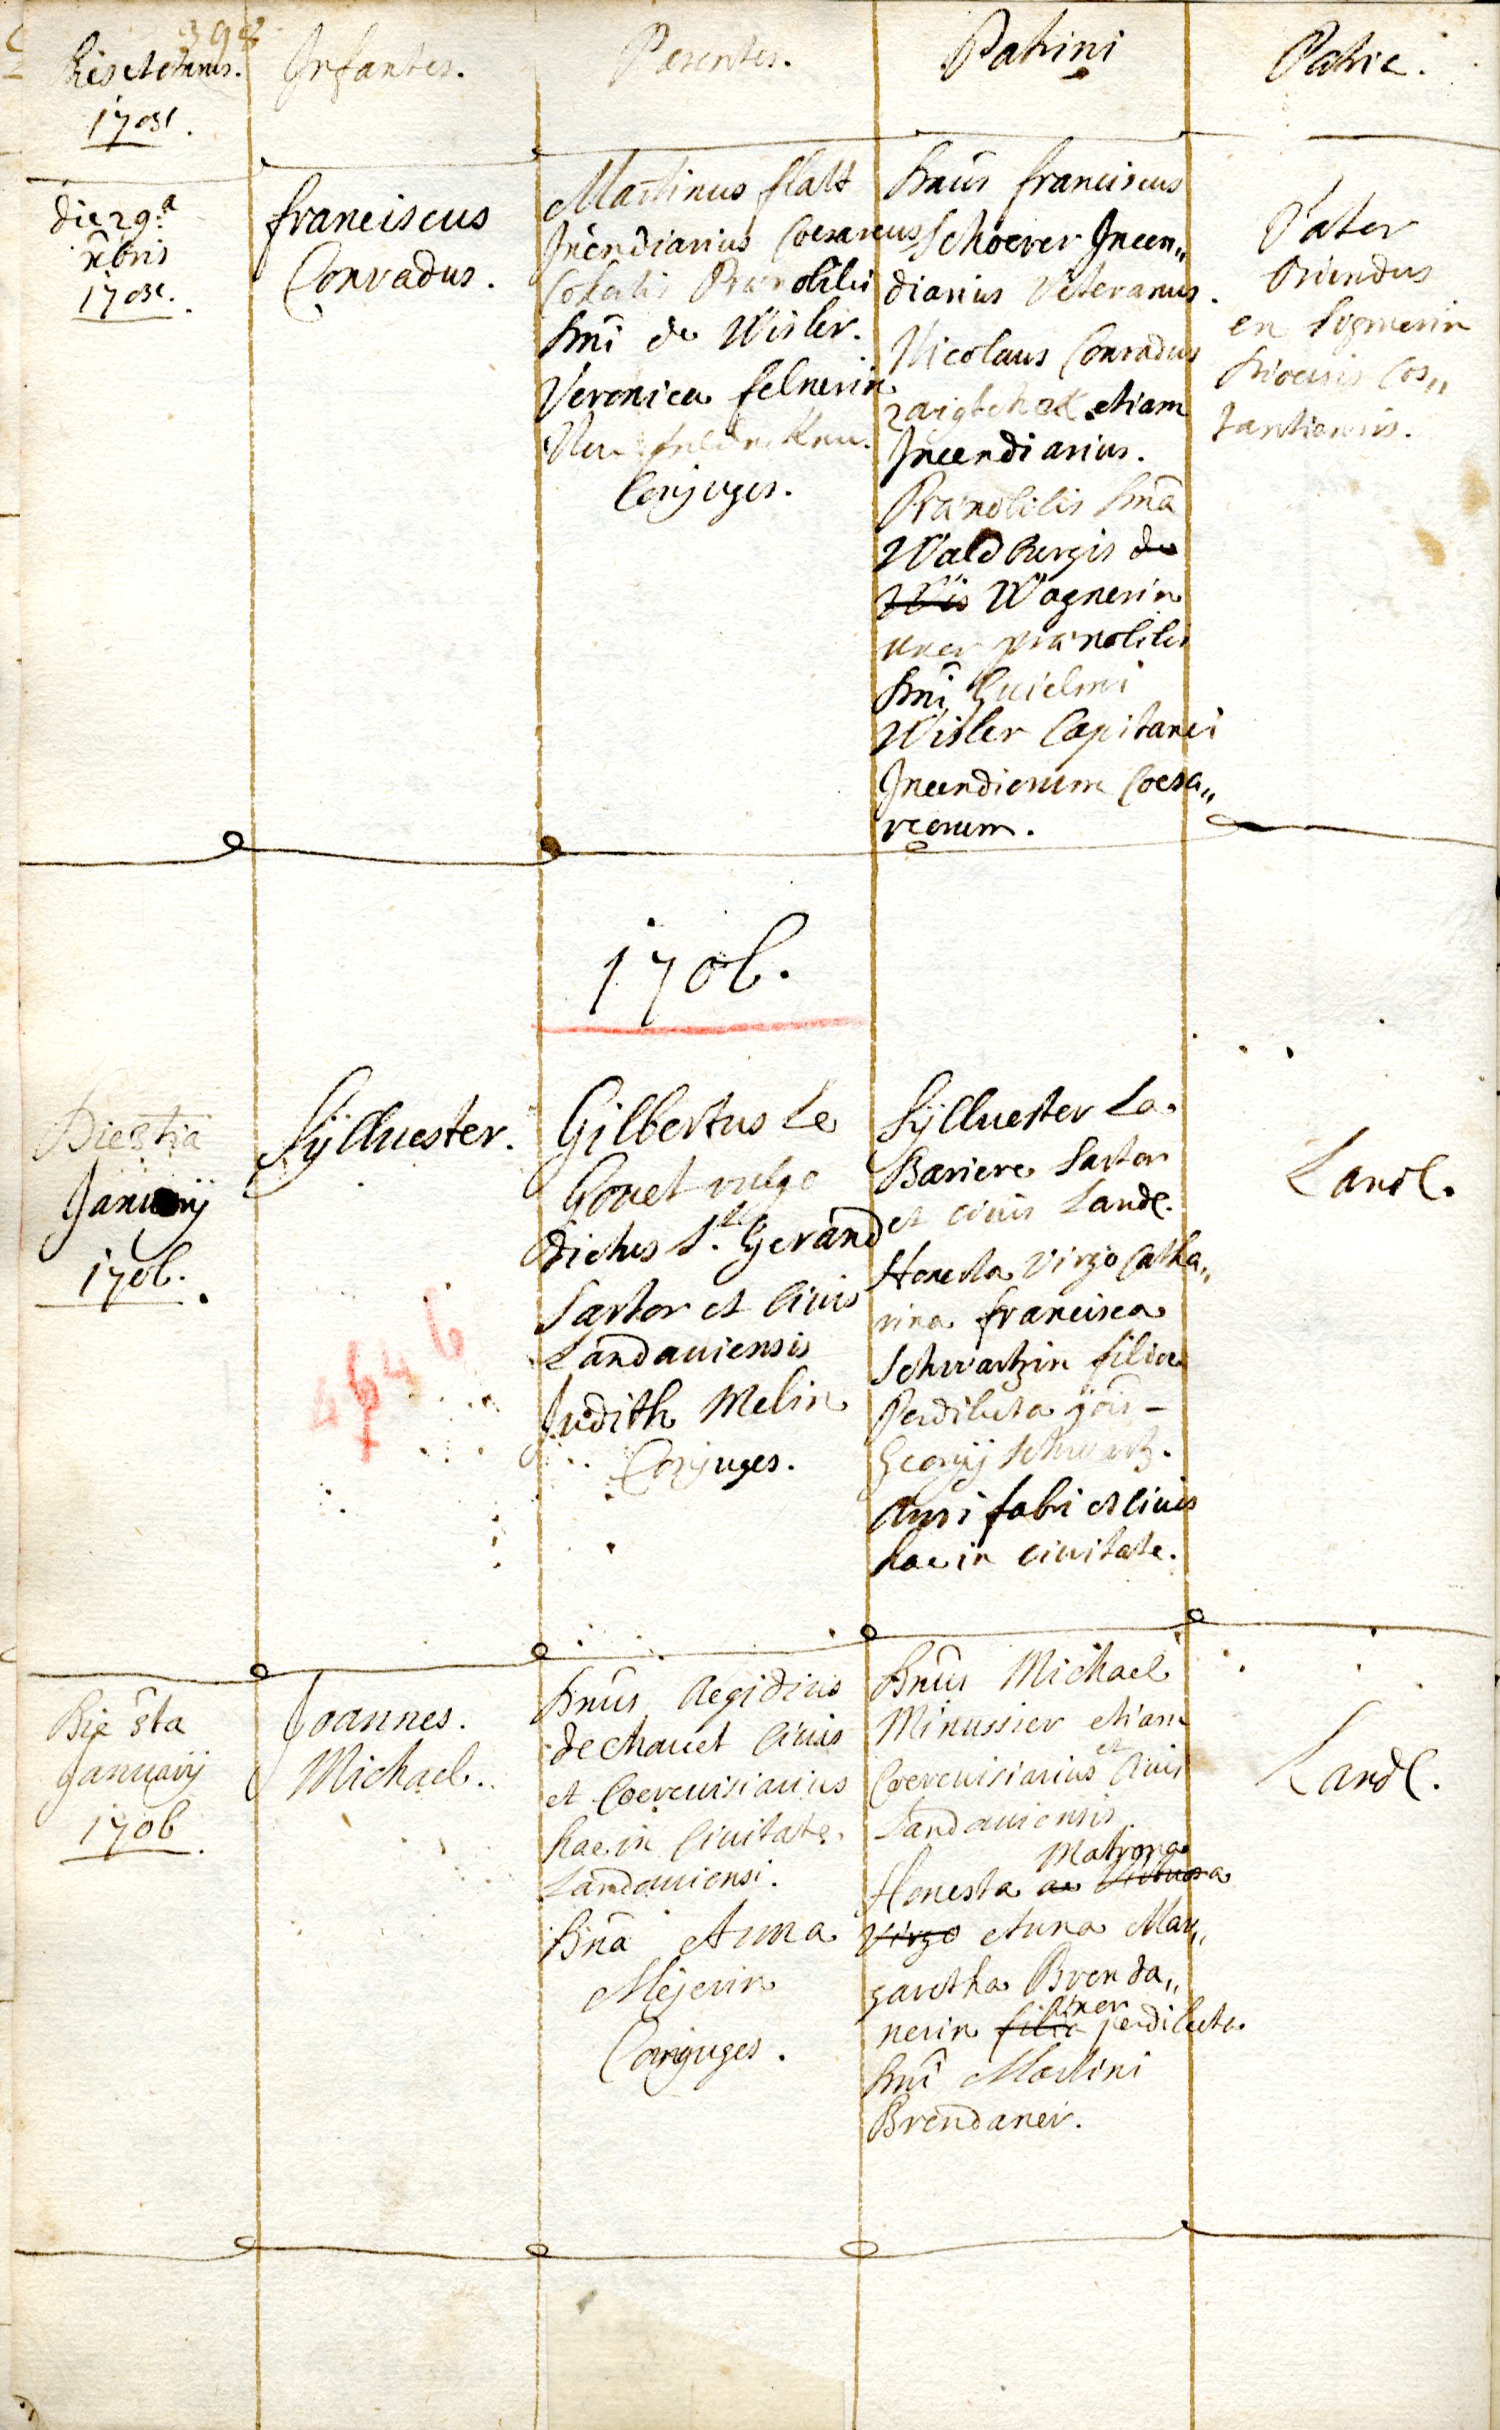 398
Dies et annus.
Infantes.
Parentes.
Patrini
Patria.
die 29.a
franciscus
Conradus.
Martinus flatt
Incendiarius Coesareus
Prænobilis
Dni͂ de Wisler.
Veronica felnerin
Conjuges.
Dnus͂ franciscus
Schoever Incen„
diarius Veteranus.
Nicolaus Conradus
etiam
Incendiarius.
Prænobilis Dna͂
Waldburgis de
Wis Wagnerin
uxor prænobilis
Dni͂ Guielmi
Wisler Capitanei
Incendiorum Coesa„
reorum.
Pater
Oriundus
ex
Dioecesis Cos„
tantiensis.
170b.
Die 3tia
Januarij
170b.
Sylluester.
Gilbertus Le
Gouet vulgo
dictus St. Gerand
Sartor et Ciuis
Landauiensis
Judith Melin
Conjuges.
Sylluester La
Bariere Sartor
et ciuis Land.
Honesta Virgo Catha„
rina francisca
Schwartzin filia
Perdilecta
Georgij Schwartz
Auri fabri et ciuis
hac in ciuitate.
Land.
4646
Die 5ta
Januarij
170b
Joannes.
Michael.
Dnus͂ Aegidius
dechauet Ciuis
et Coereuisiarius
hac in Ciuitate
Landauiensi.
Dna͂ Anna
Mejerin
Conjuges.
Dnus͂ Michael
Minussier etiam
Coereuisiarius et Ciuis
Landauiensis
Matrona
Honesta ac Virtuosa
Virgo Anna Mar„
garetha Brenda„
uxor
nerin filia perdilecta
Dni͂ Martini
Brendaner.
Land.